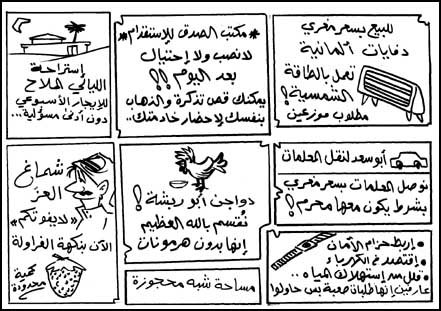 للبيع بسعر مغري
دفايات ألمانية
تعمل بالطاقة
الشمسية!
مطلوب موزعين
* مكتب الصدق للإستقدام *
لا نصب ولا إحتيال
بعد اليوم!!
يمكنك قص تذكرة والذهاب
بنفسك لإحضار خادمتك..
إستراحة
الليالي الملاح
للإيجار الأسبوعي
دون أدنى مسؤلية...
أبو سعد لنقل المعلمات
نوصل المعلمات بسعر مغري
بشرط يكون معها محرم!
• إربط حزام الأمان
• إقتصد في الكهرباء
• قلل من إستهلاك المياه..
عارفين إنها طلبات صعبة بس حاولوا
دواجن أبو ريشة!
نُقسم بالله العظيم
إنها بدون هرمونات
مساحة شبه محجوزة
شماغ
العز
«لايفوتكم»
الآن بنكهة الفراولة
كمية
محدودة